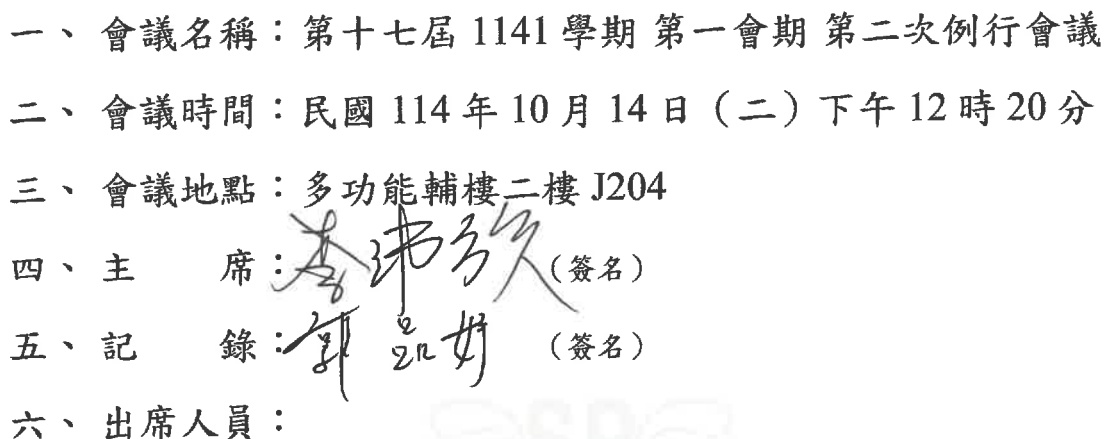 一、 會議名稱：第十七屆 1141 學期 第一會期 第二次例行會議
二、 會議時間：民國 114 年 10 月 14 日（二）下午 12 時 20 分
三、 會議地點：多功能輔樓二樓 J204
四、 主 席：李 (簽名)
五、 記 錄：郭 (簽名)
六、 出席人員：